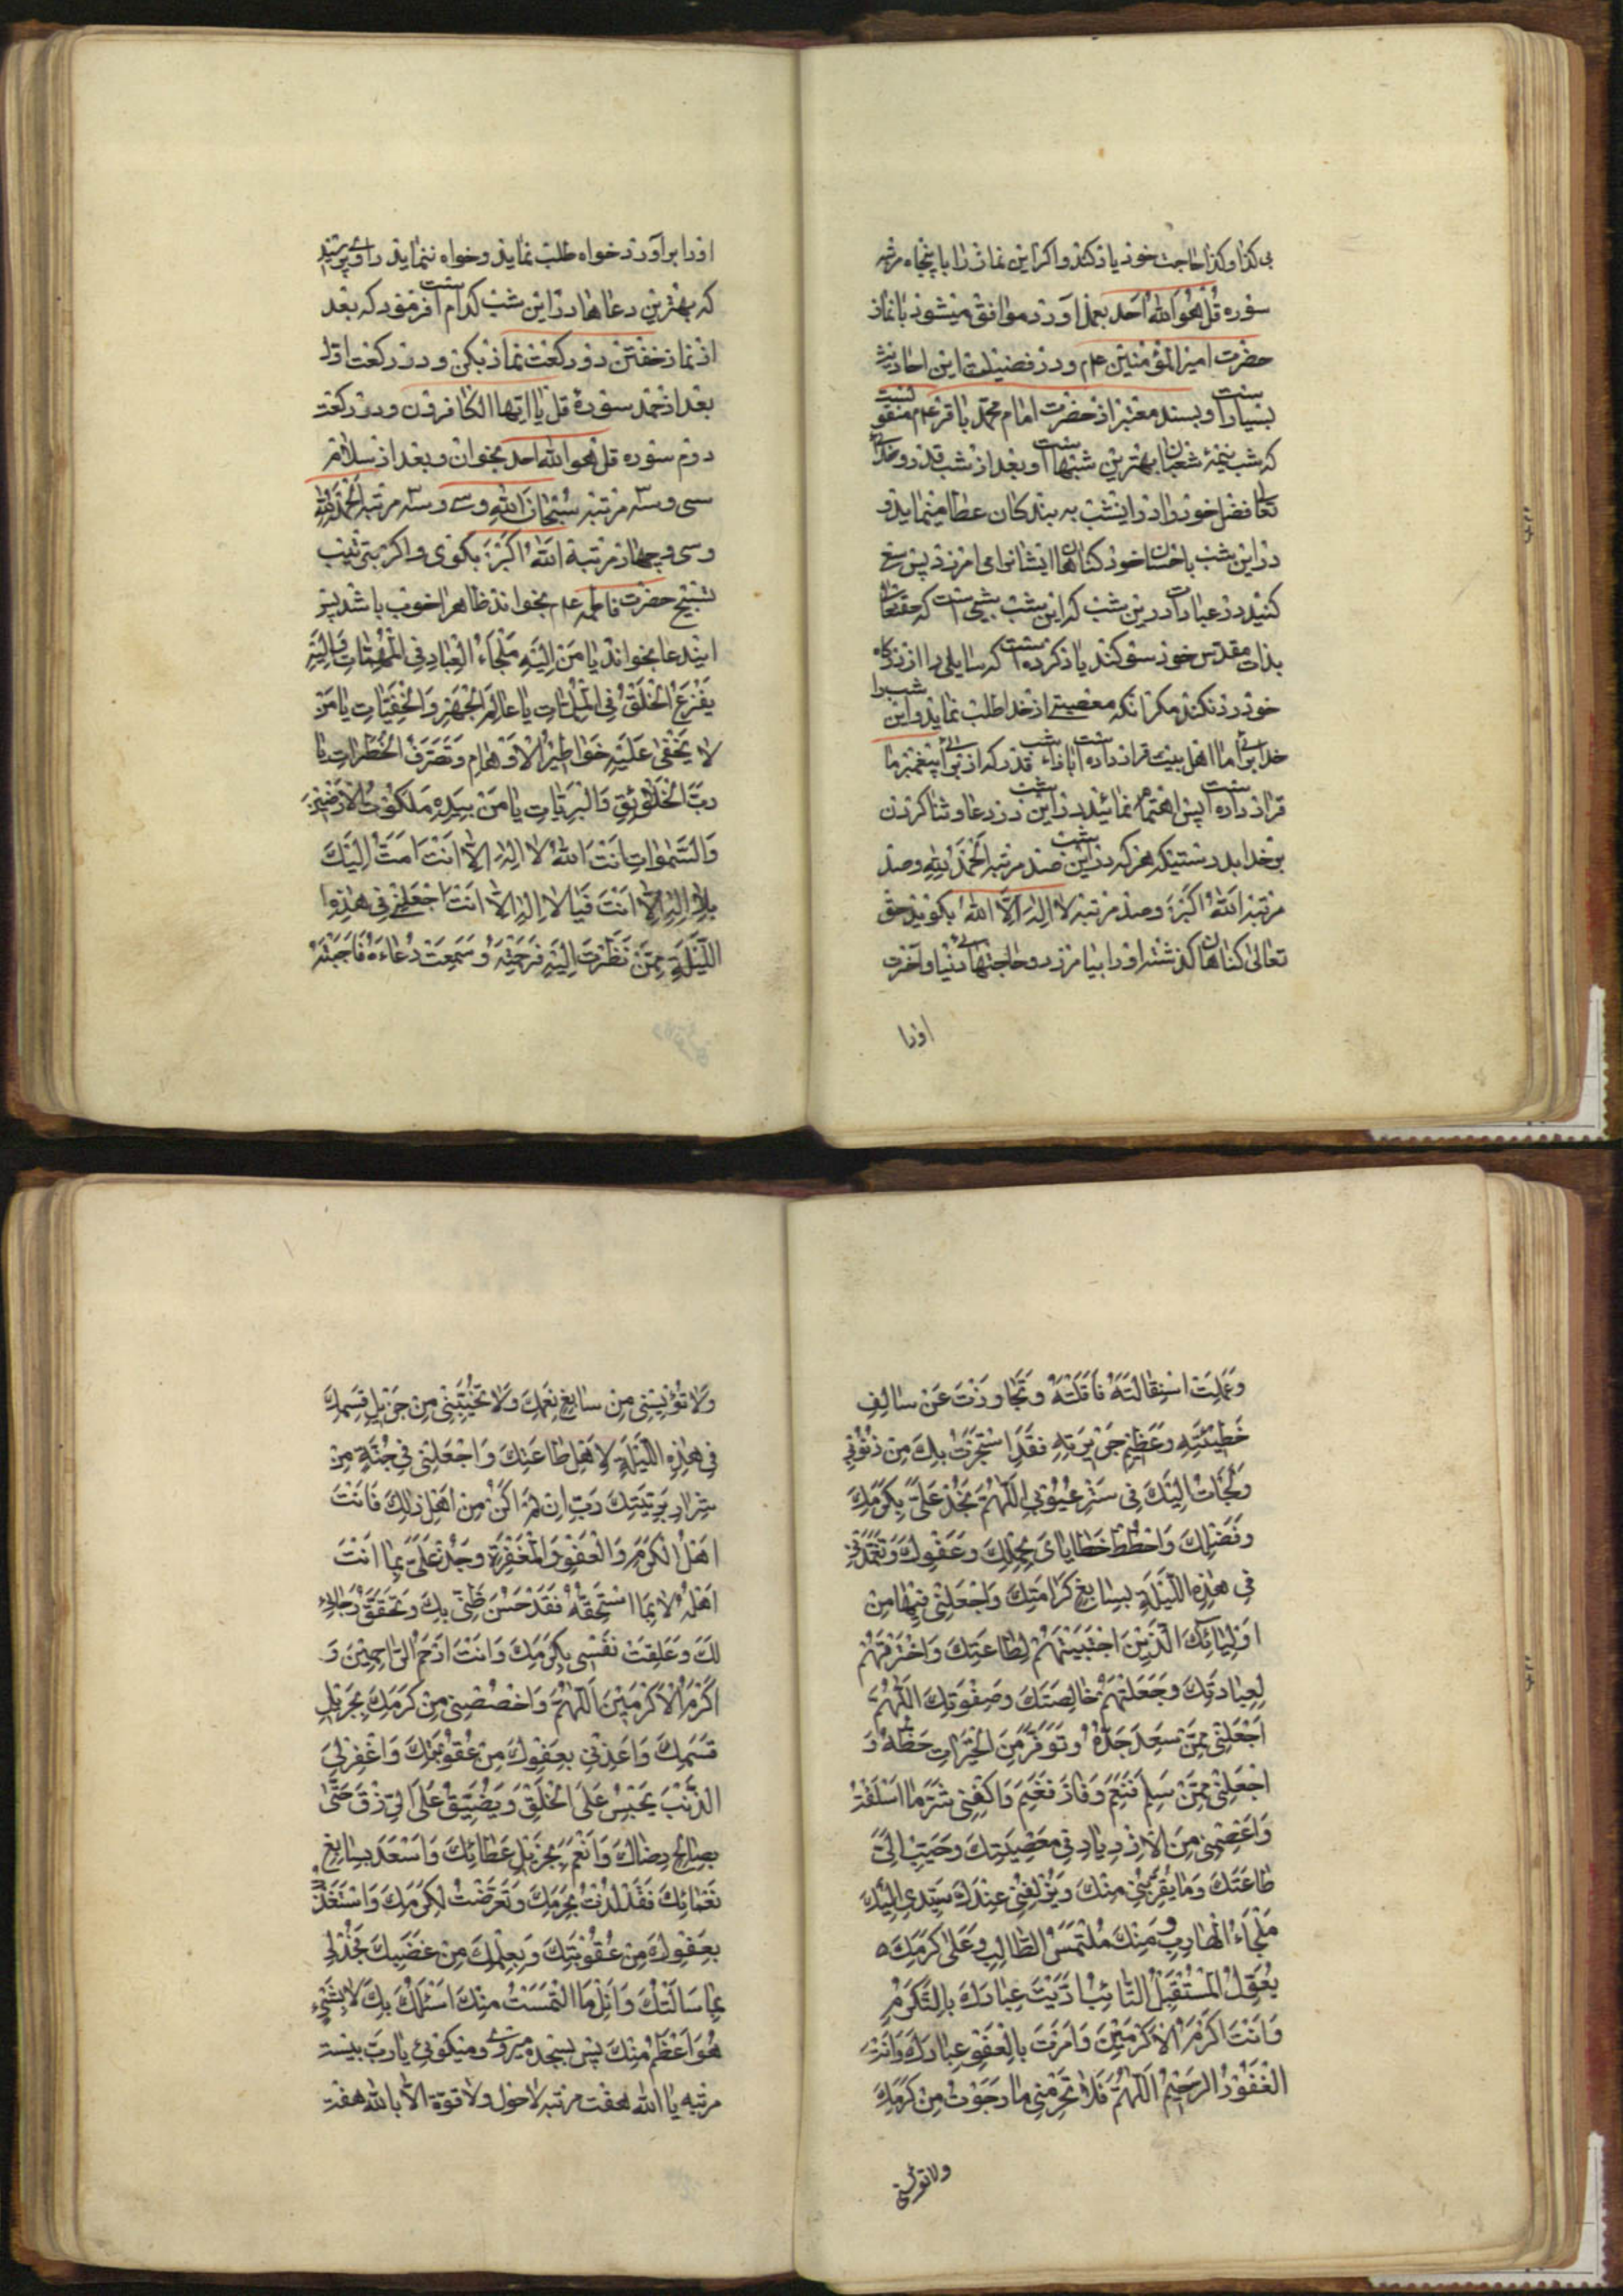 بی کذا و کذا حاجت خود یاد کند و اکر این نماز را با پنجاه مرتبه
سوره قُل هُوَ اللّٰهُ اَحَد بعمل آورد موافق میشود با نماز
حضرت امیر المؤمنین عم و در فضیلت این احادیث
بسیار است و بسند معتبر از حضرت امام محمّد باقر عم منقولست
که شب نیمهٔ شعبان بهترین شبها است و بعد از شب قدر و خدای
تعالی فضل خود را در اینشب به بندکان عطا مینماید و
در این شب باحسان خود کناهان ایشانرا می امرزد پس سع
کنید در عبادت در این شب که این شب شبی است که حقتعالی
بذات مقدس خود سوکند یاد کرده است که سایلی را از درکاه
خود رد نکند مکر انکه معصیتی از خدا طلب نماید و این شب را
خدا برای ما اهل بیت قرار داده است بازاء شب قدر که از برای پیغمبر ما
قرار داده است پس اهتمام نمائید در این شب در دعا و ثنا کردن
بر خدا بدرستیکه هرکه در این شب صد مرتبه اَلْحَمْدُ لِلّٰهِ و صد
مرتبه اَللّٰهُ اَکْبَرُ و صد مرتبه لا اِلٰهَ اِلَّا اللّٰهُ بکوید حق
تعالی کناهان کذشته او را بیامرزد و حاجتهای دنیا و آخرت
اورا
اورا برآورد خواه طلب نماید و خواه ننماید راوی پرسید
که بهترین دعاها در این شب کدام است فرمود که بعد
از نماز خفتن دو رکعت نماز بکن و در رکعت اول
بعد از حمد سورهٔ قل یا ایها الکافرون و در رکعت
دوم سوره قل هو الله احد بخوان و بعد از سلام
سی و سه مرتبه سُبْحانَ اللهِ و سی و سه مرتبه اَلْحَمْدُ لِلّٰهِ
و سی و چهار مرتبه اَللّٰهُ اَکْبَرُ بکوی و اکر بترتیب
تسبیح حضرت فاطمه عم بخواند ظاهرا خوب باشد پس
ایندعا بخواند یا مَنْ اِلَیْهِ مَلْجَاءُ الْعِبادِ فِی الْمُهِمّاتِ وَ اِلَیْهِ
یَفْزَعُ الْخَلْقُ فِی الْمُلِمّاتِ یا عالِمَ الْجَهْرِ وَالْخَفِیّاتِ یا مَنْ
لا یَخْفٰی عَلَیْهِ خَواطِرُ الْاَوْهامِ وَ تَصَرُّفُ الْخَطَراتِ یا
رَبَّ الْخَلائِقِ وَالْبَرِیّاتِ یا مَنْ بِیَدِهِ مَلَکُوتُ الْاَرَضینَ
وَالسَّمٰواتِ اَنْتَ اللّٰهُ لا اِلٰهَ اِلّا اَنْتَ اَمُتُّ اِلَیْكَ
بِلا اِلٰهَ اِلّا اَنْتَ فَیا لا اِلٰهَ اِلّا اَنْتَ اجْعَلْنی فی هٰذِهِ
اللَّیْلَةِ مِمَّنْ نَظَرْتَ اِلَیْهِ فَرَحِمْتَهُ وَ سَمِعْتَ دُعاءَهُ فَاَجَبْتَهُ
وَعَلِمْتَ اسْتِقالَتَهُ فَاَقَلْتَهُ وَ تَجاوَزْتَ عَنْ سالِفِ
خَطیئَتِهِ وَ عَظیمِ جَریرَتِهِ فَقَدِ اسْتَجَرْتُ بِكَ مِنْ ذُنُوبی
وَ لَجَأْتُ اِلَیْكَ فی سَتْرِ عُیُوبی اَللّٰهُمَّ فَجُدْ عَلَیَّ بِکَرَمِكَ
وَ فَضْلِكَ وَ احْطُطْ خَطایایَ بِحِلْمِكَ وَ عَفْوِكَ وَ تَغَمَّدْنی
فی هٰذِهِ اللَّیْلَةِ بِسابِغِ کَرامَتِكَ وَ اجْعَلْنی فیها مِنْ
اَوْلِیائِكَ الَّذینَ اجْتَبَیْتَهُمْ لِطاعَتِكَ وَ اخْتَرْتَهُمْ
لِعِبادَتِكَ وَ جَعَلْتَهُمْ خالِصَتَكَ وَ صِفْوَتَكَ اَللّٰهُمَّ
اجْعَلْنی مِمَّنْ سَعِدَ جَدُّهُ وَ تَوَفَّرَ مِنَ الْخَیْراتِ حَظُّهُ وَ
اجْعَلْنی مِمَّنْ سَلِمَ فَنَعِمَ وَ فازَ فَغَنِمَ وَ اکْفِنی شَرَّ ما اَسْلَفْتُ
وَ اعْصِمْنی مِنَ الْاِزْدِیادِ فی مَعْصِیَتِكَ وَ حَبِّبْ اِلَیَّ
طاعَتَكَ وَ ما یُقَرِّبُنی مِنْكَ وَ یُزْلِفُنی عِنْدَكَ سَیِّدی اِلَیْكَ
مَلْجَاءُ الْهارِبِ وَ مِنْكَ مُلْتَمَسُ الطّالِبِ وَ عَلٰی کَرَمِكَ
یُعَوِّلُ الْمُسْتَقْبِلُ التّائِبُ اَدَّبْتَ عِبادَكَ بِالتَّکَرُّمِ
وَ اَنْتَ اَکْرَمُ الْاَکْرَمینَ وَ اَمَرْتَ بِالْعَفْوِ عِبادَكَ وَ اَنْتَ
الْغَفُورُ الرَّحیمُ اَللّٰهُمَّ فَلا تَحْرِمْنی ما رَجَوْتُ مِنْ کَرَمِكَ
ولا تؤیسنی
وَلا تُؤْیِسْنی مِنْ سابِغِ نِعَمِكَ وَلا تُخَیِّبْنی مِنْ جَزیلِ قِسَمِكَ
فی هٰذِهِ اللَّیْلَةِ لِاَهْلِ طاعَتِكَ وَ اجْعَلْنی فی جُنَّةٍ مِنْ
شِرارِ بَرِیَّتِكَ رَبِّ اِنْ لَمْ اَکُنْ مِنْ اَهْلِ ذٰلِكَ فَاَنْتَ
اَهْلُ الْکَرَمِ وَ الْعَفْوِ وَ الْمَغْفِرَةِ وَ جُدْ عَلَیَّ بِما اَنْتَ
اَهْلُهُ لا بِما اَسْتَحِقُّهُ فَقَدْ حَسُنَ ظَنّی بِكَ وَ تَحَقَّقَ رَجائی
لَكَ وَ عَلِقَتْ نَفْسی بِکَرَمِكَ وَ اَنْتَ اَرْحَمُ الرّاحِمینَ وَ
اَکْرَمُ الْاَکْرَمینَ اَللّٰهُمَّ وَ اخْصُصْنی مِنْ کَرَمِكَ بِجَزیلِ
قِسَمِكَ وَ اَعِذْنی بِعَفْوِكَ مِنْ عُقُوبَتِكَ وَ اغْفِرْ لِیَ
الذَّنْبَ یَحْبِسُ عَلَیَّ الْخَلْقَ وَ یُضَیِّقُ عَلَیَّ الرِّزْقَ حَتّٰی
بِصالِحِ رِضاكَ وَ اَنْعَمَ بِجَزیلِ عَطائِكَ وَ اَسْعَدَ بِسابِغِ
نَعْمائِكَ فَقَدْ لُذْتُ بِحَرَمِكَ وَ تَعَرَّضْتُ لِکَرَمِكَ وَ اسْتَعَذْتُ
بِعَفْوِكَ مِنْ عُقُوبَتِكَ وَ بِحِلْمِكَ مِنْ غَضَبِكَ فَجُدْ لی
بِما سَاَلْتُكَ وَ اَنِلْ مَا الْتَمَسْتُ مِنْكَ اَسْئَلُكَ بِكَ لا بِشَیْءٍ
هُوَ اَعْظَمُ مِنْكَ پس بسجده میروی و میکوئی یا رَبِّ بیست
مرتبه یا الله هفت مرتبه لا حول و لا قوة الّا بالله هفت